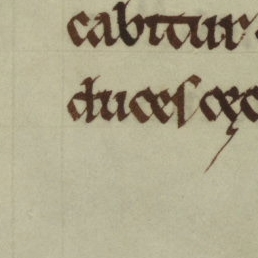 cabitur
duces